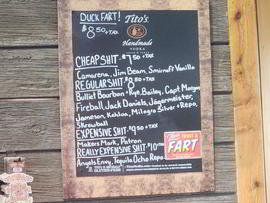 DUCK FART!
$8.50 + TAX
Tito's
Handmade
VODKA
CHEAP SHIT $7.50 + TAX
Camarena, Jim Beam, Smirnoff Vanilla
REGULAR SHIT $8.50 + TAX
Bulliet Bourbon + Rye, Bailey, Capt. Morgan
Fireball, Jack Daniels, Jagermeister,
Jameson, Kahlua, Milagro Silver + Repo,
Skrewball
EXPENSIVE SHIT $9.50 + TAX
Makers Mark, Patron
REALLY EXPENSIVE SHIT $10
Angels Envy, Tequila Ocho Repo
TRUST A
FART